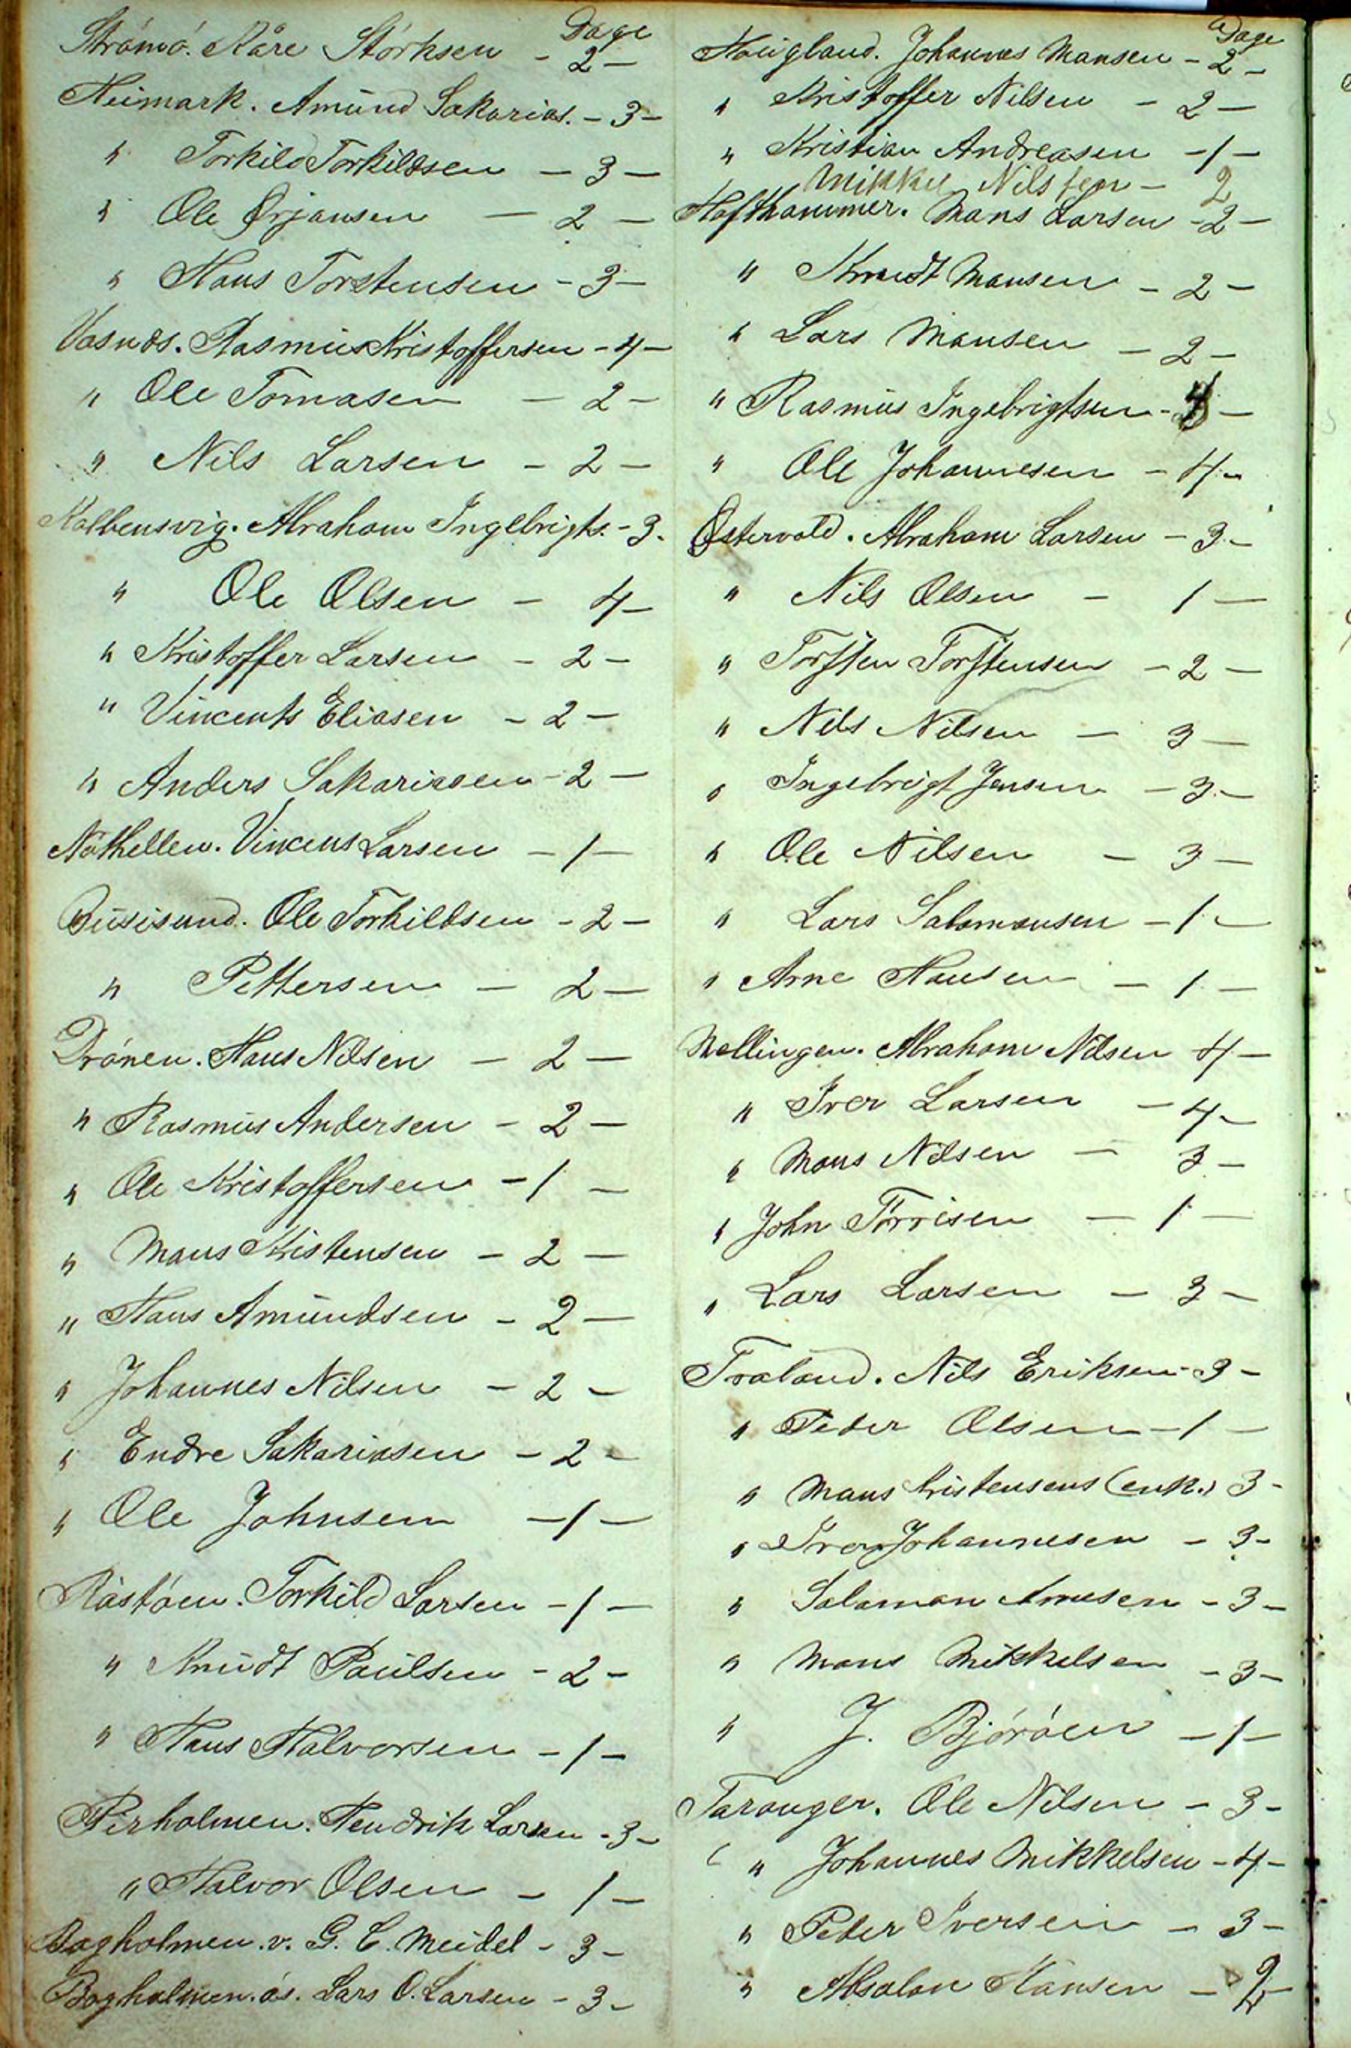 Dage
Strømø. Kåre Störksen - 2 -
Heimark. Amund Sakarias. - 3 -
" Torkild Torkildsen - 3 -
" Ole Örjansen - 2 -
" Hans Torstensen - 3 -
Vasnes. Rasmus Kristoffersen - 4 -
" Ole Tomasen - 2 -
" Nils Larsen - 2 -
Kalbensvig. Abraham Ingebrigts. - 3 -
" Ole Olsen - 4 -
" Kristoffer Larsen - 2 -
" Vincents Eliasen - 2 -
" Anders Sakariasen - 2 -
Nåthellen. Vincens Larsen - 1 -
Buisisund. Ole Torkildsen - 2 -
" Pettersen - 2 -
Drönen. Hans Nilsen - 2 -
" Rasmus Andersen - 2 -
" Ole Kristoffersen - 1 -
" Mans Kristensen - 2 -
" Hans Amundsen - 2 -
" Johannes Nilsen - 2 -
" Endre Sakariasen - 2 -
" Ole Johnsen - 1 -
Råstöen. Torkild Larsen - 1 -
" Knudt Paulsen - 2 -
" Hans Halvorsen - 1 -
Perholmen. Hendrik Larsen - 3 -
" Halvor Olsen - 1 -
Bagholmen. v. G. C. Meidel - 3 -
Bagholmen. ös. Lars O. Larsen - 3 -
Dage
Hougland. Johannes Mansen - 2 -
" Kristoffer Nilsen - 2 -
" Kristian Andreasen - 1 -
Mikkel Nilssen - 2
Hofthammer. Mans Larsen - 2 -
" Knudt Mansen - 2 -
" Lars Mansen - 2 -
" Rasmus Ingebrigtsen - 4 -
" Ole Johannesen - 4 -
Östervold. Abraham Larsen - 3 -
" Nils Olsen - 1 -
" Torsten Torstensen - 2 -
" Nils Nilsen - 3 -
" Ingebrigt Jensen - 3 -
" Ole Nilsen - 3 -
" Lars Salomonsen - 1 -
" Arne Hansen - 1 -
Mellingen. Abraham Nilsen 4 -
" Iver Larsen - 4 -
" Mons Nilsen - 3 -
" John Törrisen - 1 -
" Lars Larsen - 3 -
Træland. Nils Eriksen - 3 -
" Peder Olsen - 1 -
" Mans Kristensens (enk.) 3 -
" Iver Johannesen - 3 -
" Salamon Arnesen - 3 -
" Mons Mikkelsen - 3 -
" J. Björöen - 1 -
Taranger. Ole Nilsen - 3 -
" Johannes Mikkelsen - 4 -
" Peder Iversen - 3 -
" Absalon Hansen -